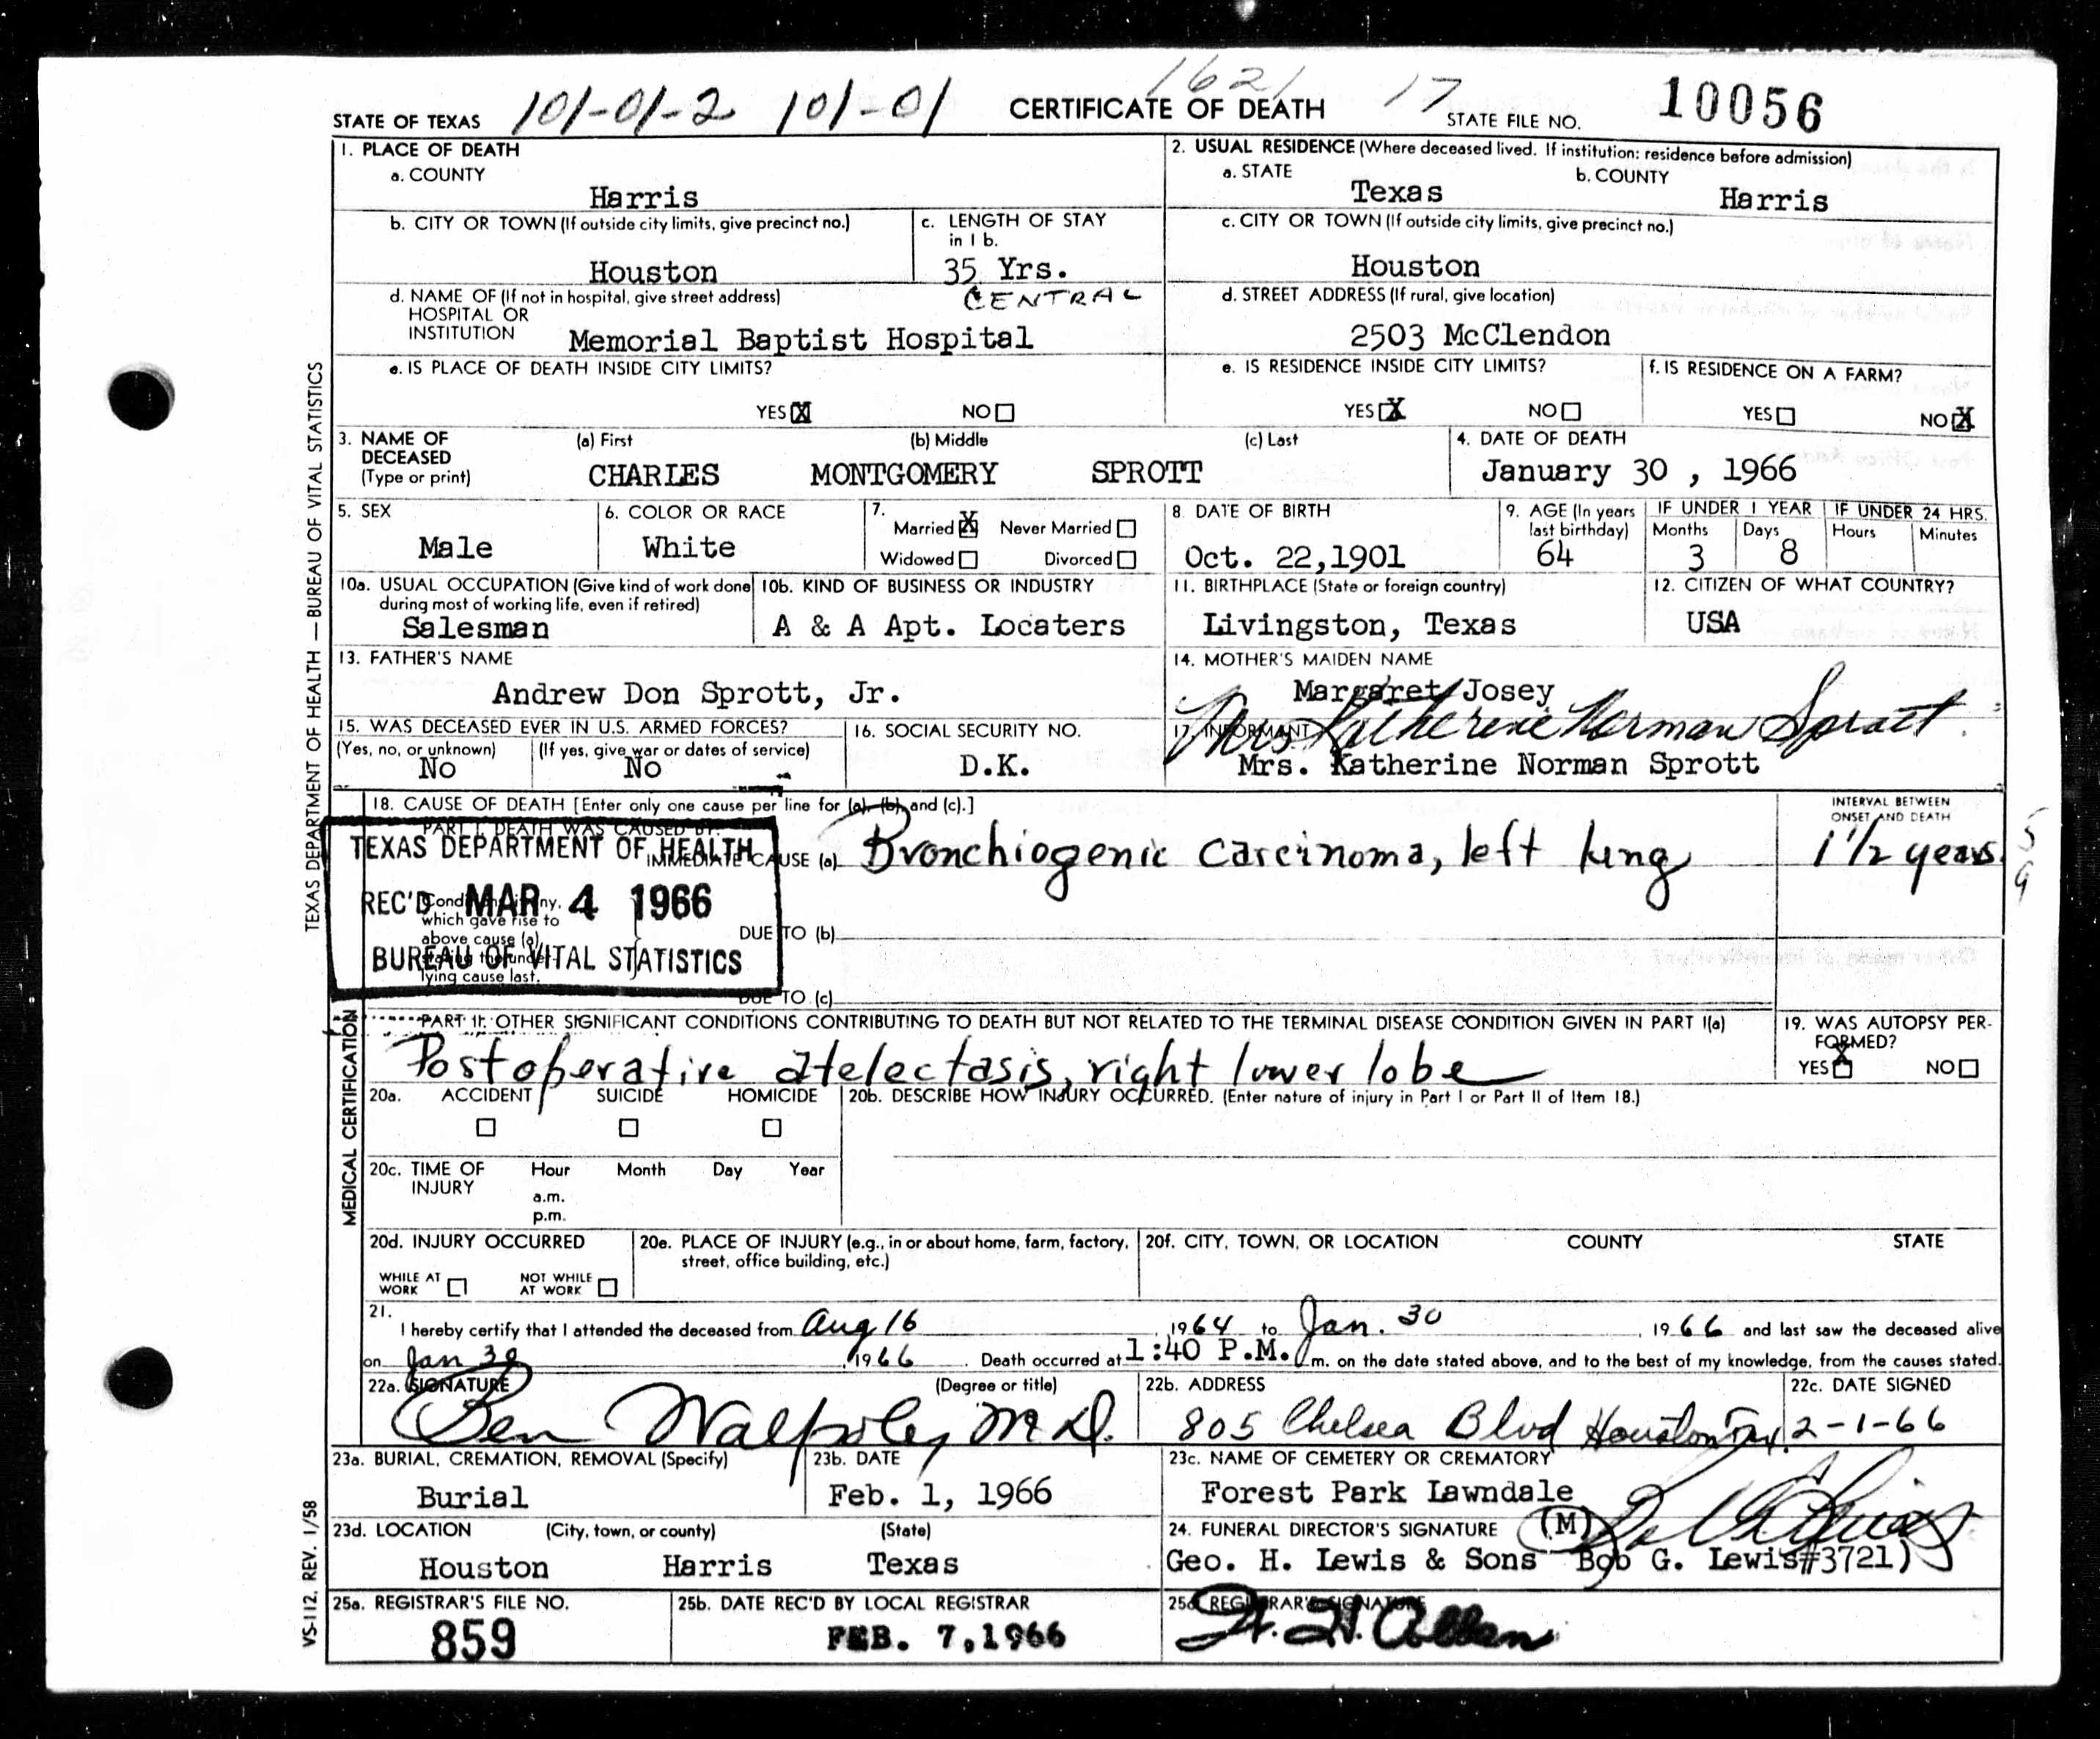 1621 17
STATE OF TEXAS 101-01-2 101-01 CERTIFICATE OF DEATH STATE FILE NO. 10056
1. PLACE OF DEATH
a. COUNTY
Harris
2. USUAL RESIDENCE (Where deceased lived. If institution: residence before admission)
a. STATE b. COUNTY
Texas Harris
b. CITY OR TOWN (If outside city limits, give precinct no.)
Houston
c. LENGTH OF STAY
in 1 b.
35 Yrs.
c. CITY OR TOWN (If outside city limits, give precinct no.)
Houston
d. NAME OF (If not in hospital, give street address)
HOSPITAL OR
INSTITUTION
CENTRAL
Memorial Baptist Hospital
d. STREET ADDRESS (If rural, give location)
2503 McClendon
e. IS PLACE OF DEATH INSIDE CITY LIMITS?
YES X NO
e. IS RESIDENCE INSIDE CITY LIMITS?
YES X NO
f. IS RESIDENCE ON A FARM?
YES NO X
3. NAME OF
DECEASED
(Type or print)
(a) First (b) Middle (c) Last
CHARLES MONTGOMERY SPROTT
4. DATE OF DEATH
January 30 , 1966
5. SEX
Male
6. COLOR OR RACE
White
7.
Married X Never Married
Widowed Divorced
8. DATE OF BIRTH
Oct. 22,1901
9. AGE (In years
last birthday)
64
IF UNDER 1 YEAR IF UNDER 24 HRS.
Months Days Hours Minutes
3 8
10a. USUAL OCCUPATION (Give kind of work done
during most of working life, even if retired)
Salesman
10b. KIND OF BUSINESS OR INDUSTRY
A & A Apt. Locaters
11. BIRTHPLACE (State or foreign country)
Livingston, Texas
12. CITIZEN OF WHAT COUNTRY?
USA
13. FATHER'S NAME
Andrew Don Sprott, Jr.
14. MOTHER'S MAIDEN NAME
Margaret Josey
15. WAS DECEASED EVER IN U.S. ARMED FORCES?
(Yes, no, or unknown) (If yes, give war or dates of service)
No No
16. SOCIAL SECURITY NO.
D.K.
17. INFORMANT
Mrs Katherine Norman Sprott
Mrs. Katherine Norman Sprott
18. CAUSE OF DEATH [Enter only one cause per line for (a), (b), and (c).]
INTERVAL BETWEEN
ONSET AND DEATH
PART I. DEATH WAS CAUSED BY:
IMMEDIATE CAUSE (a) Bronchiogenic carcinoma, left lung 1 1/2 years
59
TEXAS DEPARTMENT OF HEALTH
REC'D MAR 4 1966
BUREAU OF VITAL STATISTICS
which gave rise to
above cause (a),
lying cause last.
DUE TO (b)
DUE TO (c)
PART II. OTHER SIGNIFICANT CONDITIONS CONTRIBUTING TO DEATH BUT NOT RELATED TO THE TERMINAL DISEASE CONDITION GIVEN IN PART I(a)
Postoperative atelectasis, right lower lobe
19. WAS AUTOPSY PER-
FORMED?
YES X NO
20a. ACCIDENT SUICIDE HOMICIDE
20b. DESCRIBE HOW INJURY OCCURRED. (Enter nature of injury in Part I or Part II of Item 18.)
20c. TIME OF
INJURY
Hour Month Day Year
a.m.
p.m.
20d. INJURY OCCURRED
WHILE AT
WORK
NOT WHILE
AT WORK
20e. PLACE OF INJURY (e.g., in or about home, farm, factory,
street, office building, etc.)
20f. CITY, TOWN, OR LOCATION COUNTY STATE
21.
I hereby certify that I attended the deceased from Aug 16 1964 to Jan. 30 1966 and last saw the deceased alive
on Jan 30 1966. Death occurred at 1:40 P.M. m. on the date stated above, and to the best of my knowledge, from the causes stated.
22a. SIGNATURE (Degree or title)
Ben Walpole, M.D.
22b. ADDRESS
805 Chelsea Blvd Houston Tex.
22c. DATE SIGNED
2-1-66
23a. BURIAL, CREMATION, REMOVAL (Specify)
Burial
23b. DATE
Feb. 1, 1966
23c. NAME OF CEMETERY OR CREMATORY
Forest Park Lawndale
23d. LOCATION (City, town, or county) (State)
Houston Harris Texas
24. FUNERAL DIRECTOR'S SIGNATURE (M)
Geo. H. Lewis & Sons Bob G. Lewis#3721)
25a. REGISTRAR'S FILE NO.
859
25b. DATE REC'D BY LOCAL REGISTRAR
FEB. 7,1966
25c. REGISTRAR'S SIGNATURE
H. Allen
TEXAS DEPARTMENT OF HEALTH — BUREAU OF VITAL STATISTICS
MEDICAL CERTIFICATION
VS-112. REV. 1/58